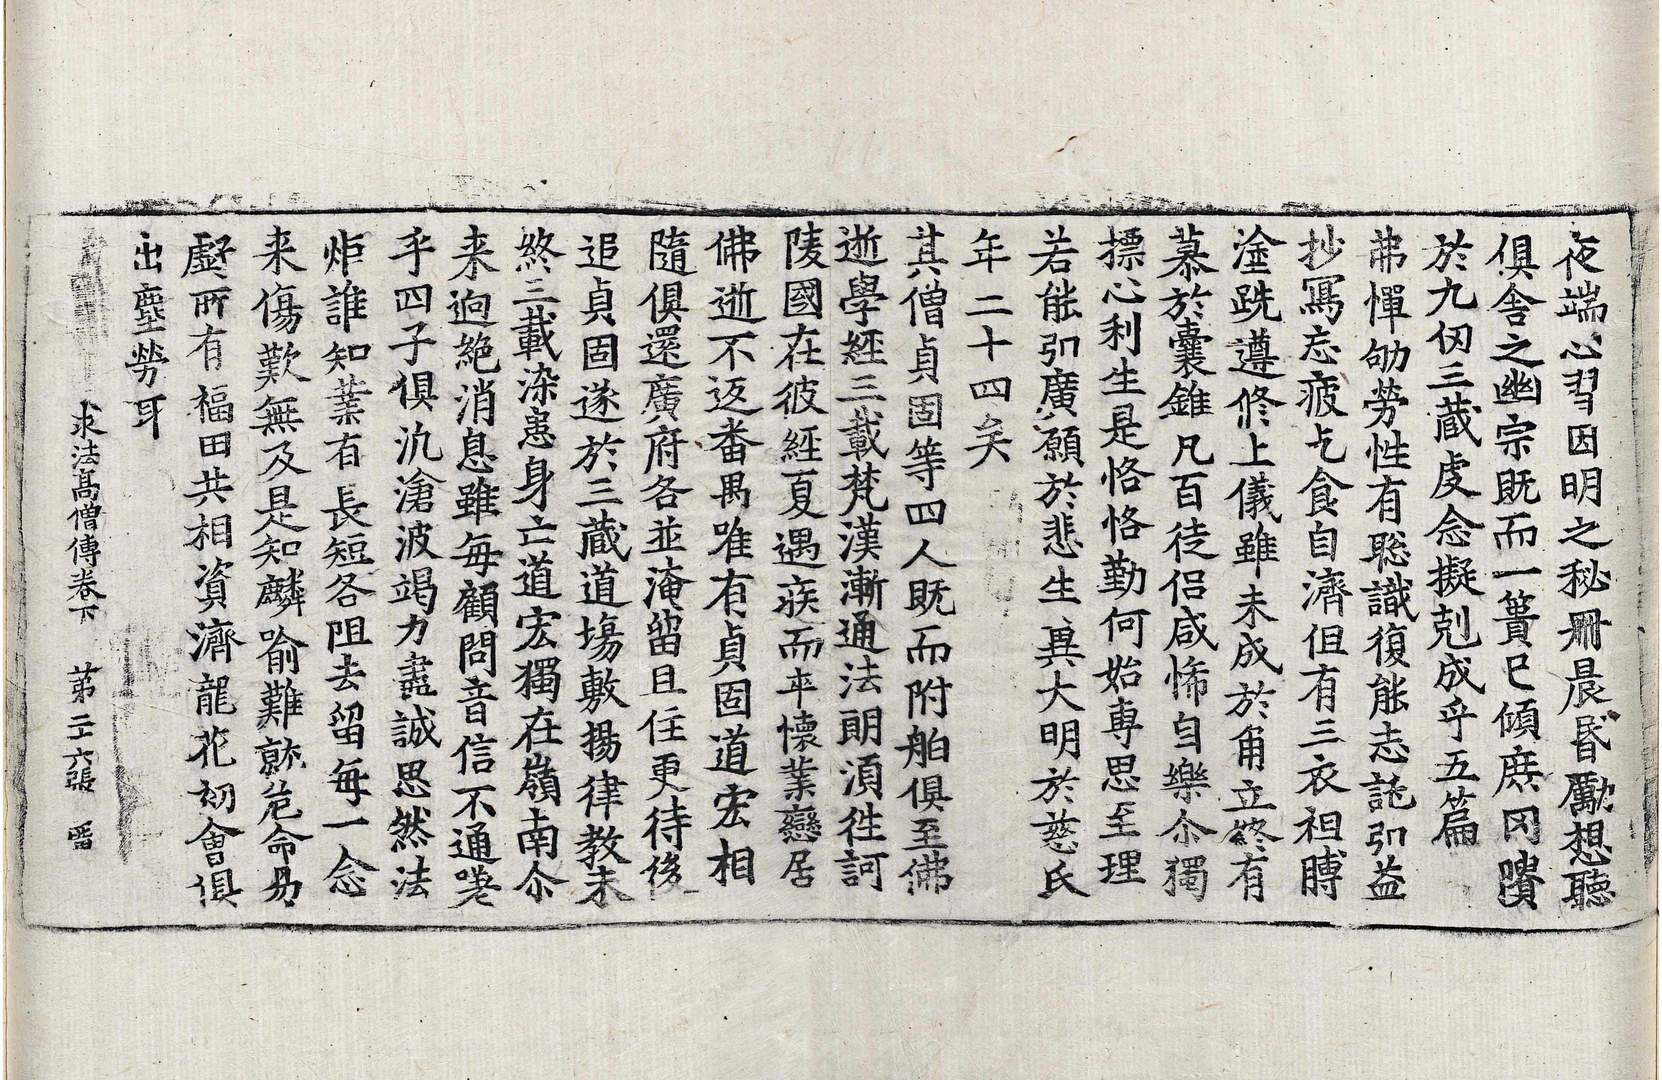 夜端心習因明之秘冊晨昏勵想聽
俱舍之幽宗既而一簣已傾庶罔隤
於九仞三藏虔念擬剋成乎五篇
弗憚劬勞性有聡識復能志託弘益
抄寫忘疲乞食自濟但有三衣袒膊
塗跣遵修上儀雖未成於角立終有
慕於囊錐凡百徒侶咸悕自樂尒獨
摽心利生是恪恪勤何始專思至理
若能弘廣願於悲生冀大明於慈氏
年二十四矣
其僧貞固等四人既而附舶俱至佛
逝學經三載梵漢漸通法朗湏徃訶
陵國在彼經夏遇疾而卒懷業戀居
佛逝不返番禺唯有貞固道宏相
隨俱還廣府各並淹留且住更待後
追貞固遂於三藏道塲敷揚律教未
終三載染患身亡道宏獨在嶺南尒
来逈絶消息雖每顧問音信不通嗟
乎四子俱汎滄波竭力盡誠思然法
炬誰知業有長短各阻去留每一念
来傷歎無及是知麟喻難就危命易
虧所有福田共相資濟龍花初會俱
出塵勞耳
求法高僧傳卷下 第二十六張